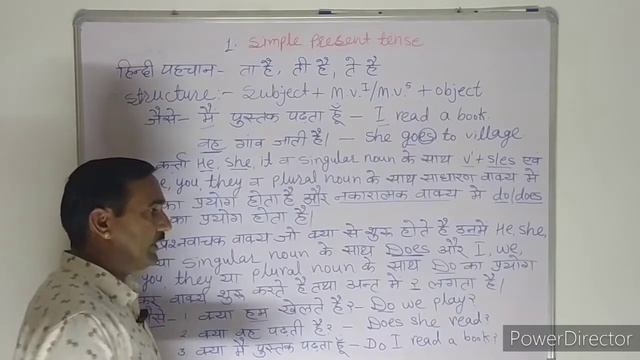 1. Simple Present tense
हिन्दी पहचान- ता है, ती है, ते है
Structure:- Subject + M.V.I/M.V.5 + object
जैसे- मैं पुस्तक पढ़ता हूँ - I read a book.
वह गांव जाती है। - she goes to village
कर्त्ता He, she, it व singular noun के साथ v' + s/es एवं
e, you, they व plural noun के साथ साधारण वाक्य मे
का प्रयोग होता है और नकारात्मक वाक्य मे do/does
का प्रयोग होता है।
प्रश्नवाचक वाक्य जो क्या से शुरू होते है उनमें He, she,
या singular noun के साथ Does और I, we,
you they या plural noun के साथ Do का प्रयोग
कर वाक्य शुरू करते है तथा अन्त मे ? लगता है।
से- 1 क्या हम खेलते है?- Do we play?
2. क्या वह पढ़ती है? - Does she read?
3 क्या मैं पुस्तक पढ़ता हूँ - Do I read a book?
PowerDirector